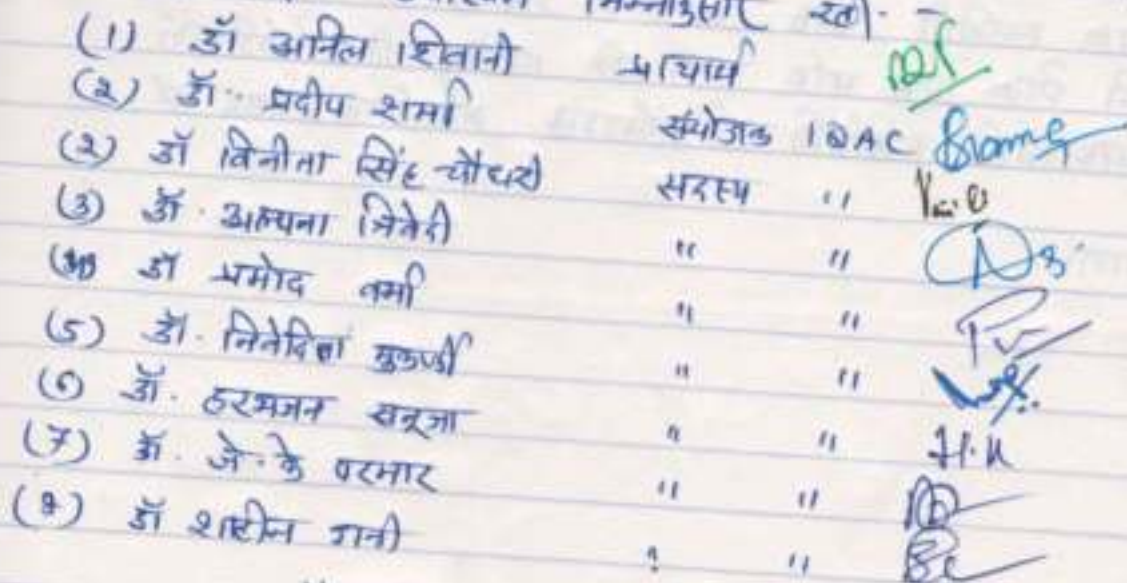 निम्नानुसार रही। -
(1) डॉ अनिल शिवानी प्राचार्य
(2) डॉ. प्रदीप शर्मा संयोजक IQAC
(2) डॉ विनीता सिंह चौधरी सदस्य "
(3) डॉ. अल्पना त्रिवेदी " "
डॉ प्रमोद वर्मा " "
(5) डॉ. निवेदिता मुकर्जी " "
(6) डॉ. हरभजन सनूजा " " H.K
(7) डॉ. जे. के परमार " "
(8) डॉ शाहीन गनी " "